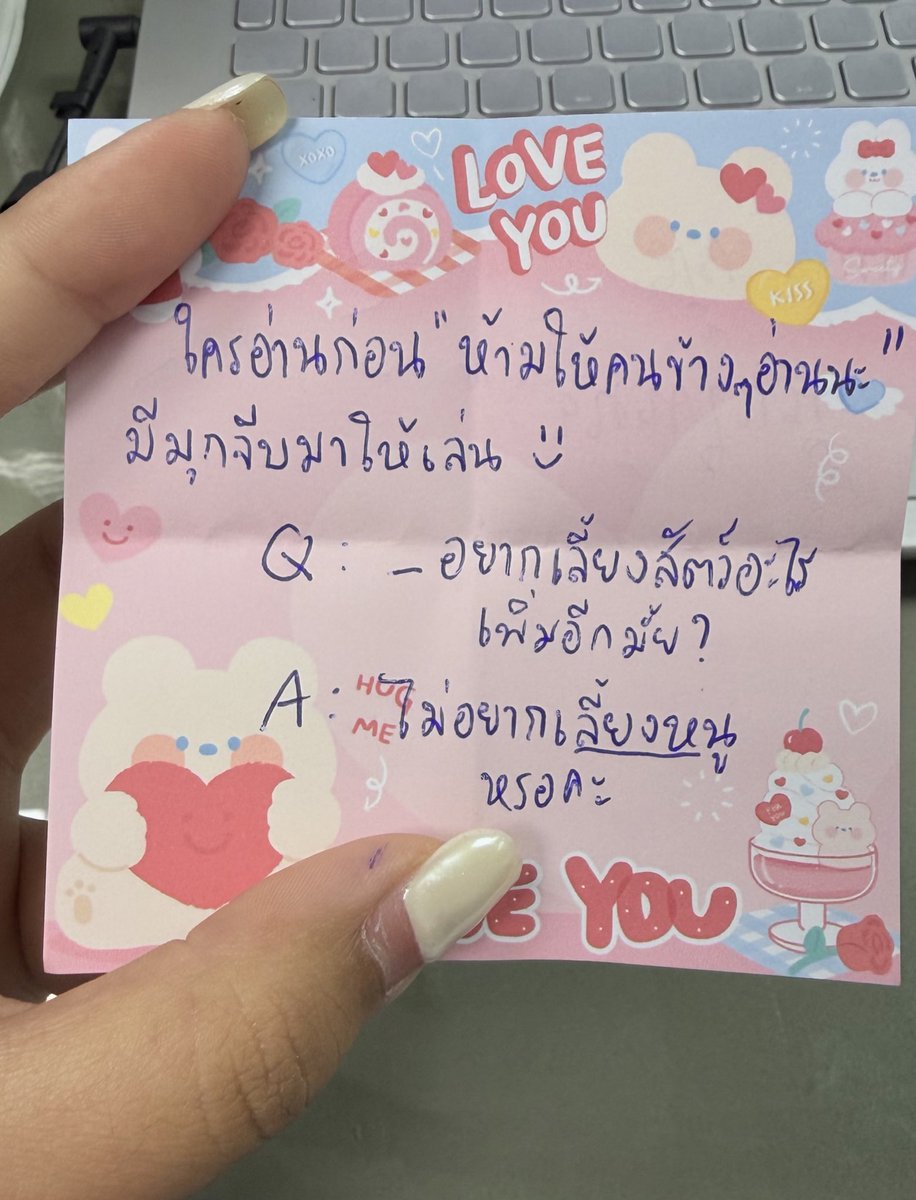 XOXO
LOVE
YOU
KISS
Sweety
ใครอ่านก่อน "ห้ามให้คนข้างๆอ่านนะ"
มีมุกจีบมาให้เล่น
Q: - อยากเลี้ยงสัตว์อะไร
เพิ่มอีกมั้ย?
HUG
ME
A: ไม่อยากเลี้ยงหนู
หรอคะ
YOU